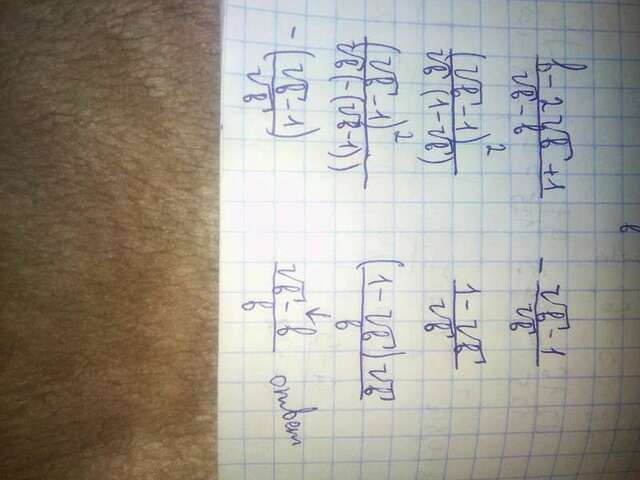 b - 2√b + 1 / √b - b
(√b - 1)² / √b (1 - √b)
(√b - 1)² / √b (-(√b - 1))
- (√b - 1) / √b
- √b - 1 / √b
1 - √b / √b
(1 - √b) √b / b
√b - b / b ответ